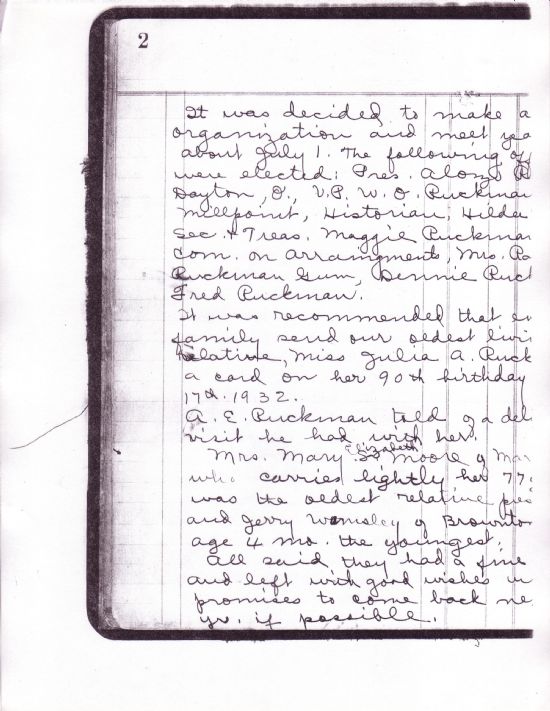 2
It was decided to make a
organization and meet yea
about July 1. The following of
were elected: Pres. Alonzo R
Dayton, O., V.P. W. O. Ruckman
Millpoint, Historian, Hilde
Sec. + Treas. Maggie Ruckman
Com. on arrangments, Mrs. Ra
Ruckman Gum, Dennie Ruck
Fred Ruckman.
It was recommended that e
family send our oldest livi
relative, Miss Julia A. Ruck
a card on her 90th birthday
17th. 1932.
A. E. Ruckman told of a del
visit he had with her.
Mrs. Mary Elizabeth Moore of Mar
who carries lightly her 77
was the oldest relative pres
and Jerry Wamsley of Brownto
age 4 mo. the youngest.
All said they had a fine
and left with good wishes
promises to come back ne
yr. if possible.